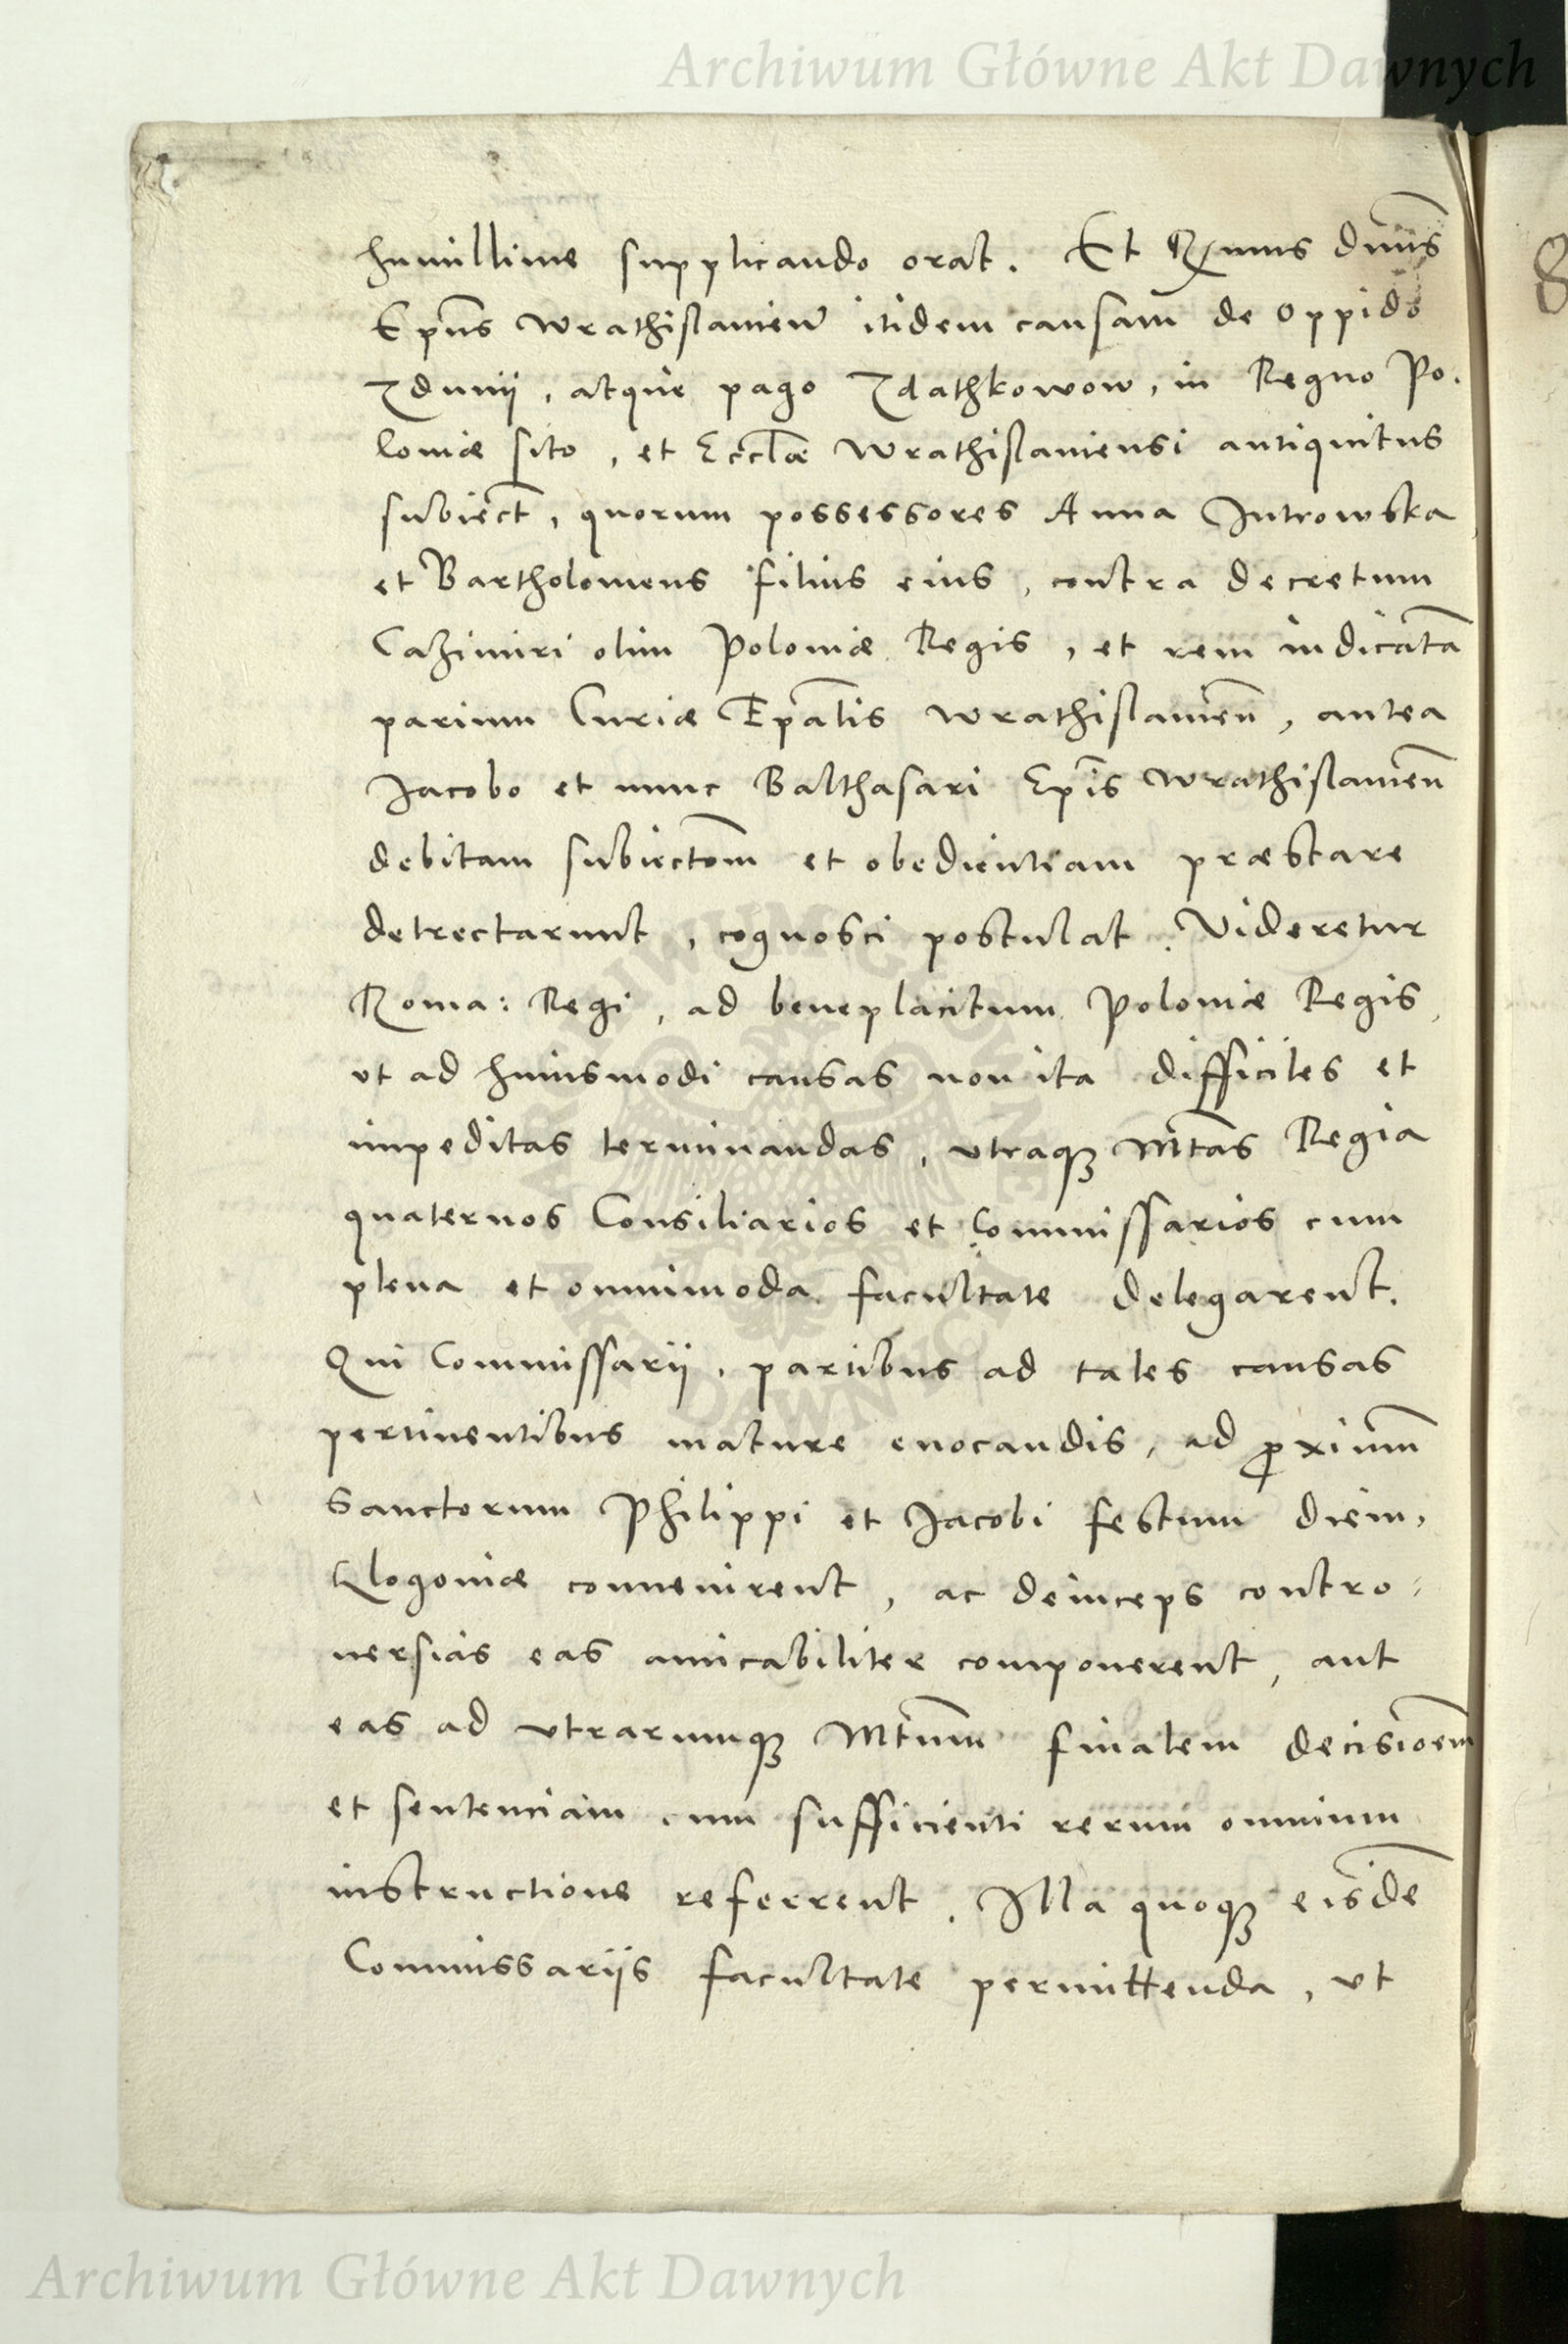 Archiwum Główne Akt Dawnych
humillime supplicando orat. Et Rx̄mus dn̄us
Ep̄us Wrathislauien̄ itidem causam de oppido
Zdunÿ, atque pago Zdathkowow, in Regno Po-
loniæ sito, et Eccl̄æ Wrathislauiensi antiquitus
subiect̄, quorum possessores Anna Jutrowska
et Bartholomeus filius eius, contra decretum
Cazimiri olim Poloniæ Regis, et rem iudicatā
parium Curiæ Ep̄alis Wrathislauien̄, antea
Jacobo et nunc Balthasari Ep̄is Wrathislauien̄
debitam subiectōm et obedientiam præstare
detrectarunt, cognosci postulat. Videretur
Roma: Regi, ad beneplacitum Poloniæ Regis,
vt ad huiusmodi causas non ita difficiles et
impeditas terminandas, vtraqꝫ Mt̄as Regia
quaternos Consiliarios et Commissarios cum
plena et omnimoda facultate delegarent.
Qui Commissarÿ, partibus ad tales causas
pertinentibus mature euocandis, ad ꝓximum̄
Sanctorum Philippi et Jacobi festum diem,
Glogoniæ conuenirent, ac deinceps contro-
uersias eas amicabiliter componerent, aut
eas ad vtrarumqꝫ Mt̄um finalem decisioēm
et sentenciam cum sufficienti rerum omnium
instructione referrent. Illa quoqꝫ eisdē
Commissarÿs facultate permittenda, vt
8
Archiwum Główne Akt Dawnych